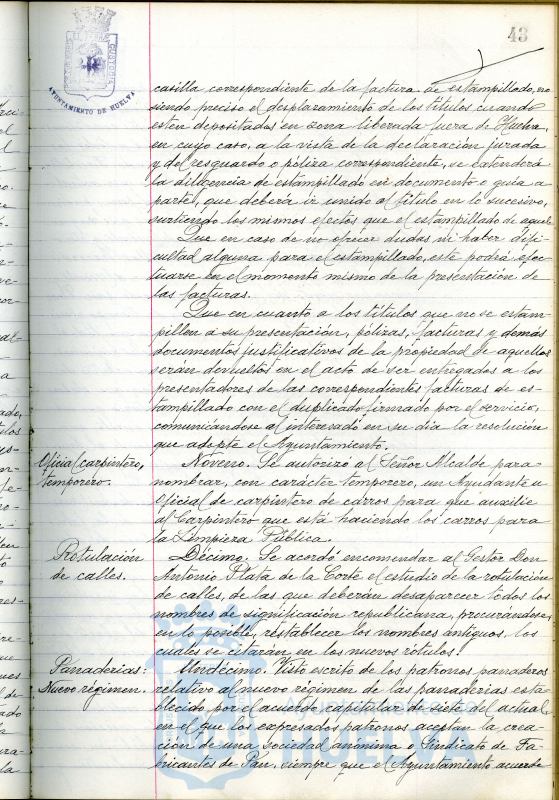 43
AYUNTAMIENTO DE HUELVA
casilla correspondiente de la factura de estampillado, no
siendo preciso el desplazamiento de los títulos cuando
esten depositados en zona liberada fuera de Huelva,
en cuyo caso, a la vista de la declaración jurada
y del resguardo o póliza correspondiente, se extenderá
la diligencia de estampillado en documento o guia a-
parte, que deberá ir unido al título en lo sucesivo,
surtiendo los mismos efectos que el estampillado de aquel.
Que en caso de no ofrecer dudas ni haber difi-
cultad alguna para el estampillado, este podrá efec-
tuarse en el momento mismo de la presentación de
las facturas.
Que en cuanto a los títulos que no se estam-
pillen a su presentación, pólizas, facturas y demás
documentos justificativos de la propiedad de aquellos
serán devueltos en el acto de ser entregados a los
presentadores de las correspondientes facturas de es-
tampillado con el duplicado firmado por el servicio,
comunicándose al interesado en su dia la resolución
que adopte el Ayuntamiento.
Oficial carpintero,
temporero.
Noveno. Se autorizo al Señor Alcalde para
nombrar, con carácter temporero, un Ayudante u
Oficial de carpintero de carros para que auxilie
al Carpintero que está haciendo los carros para
la Limpieza Pública.
Rotulación
de calles.
Décimo. Se acordó encomendar al Gestor Don
Antonio Plata de la Corte el estudio de la rotulación
de calles, de las que deberán desaparecer todos los
nombres de significación republicana, procurándose,
en lo posible, restablecer los nombres antiguos, los
cuales se citarán en los nuevos rótulos.
Panaderias:
Nuevo régimen.
Undécimo. Visto escrito de los patronos panaderos
relativo al nuevo régimen de las panaderias esta-
blecido por el acuerdo capitular de siete del actual,
en el que los expresados patronos aceptan la crea-
ción de una Sociedad anónima o Sindicato de Fa-
bricantes de Pan, siempre que el Ayuntamiento acuerde